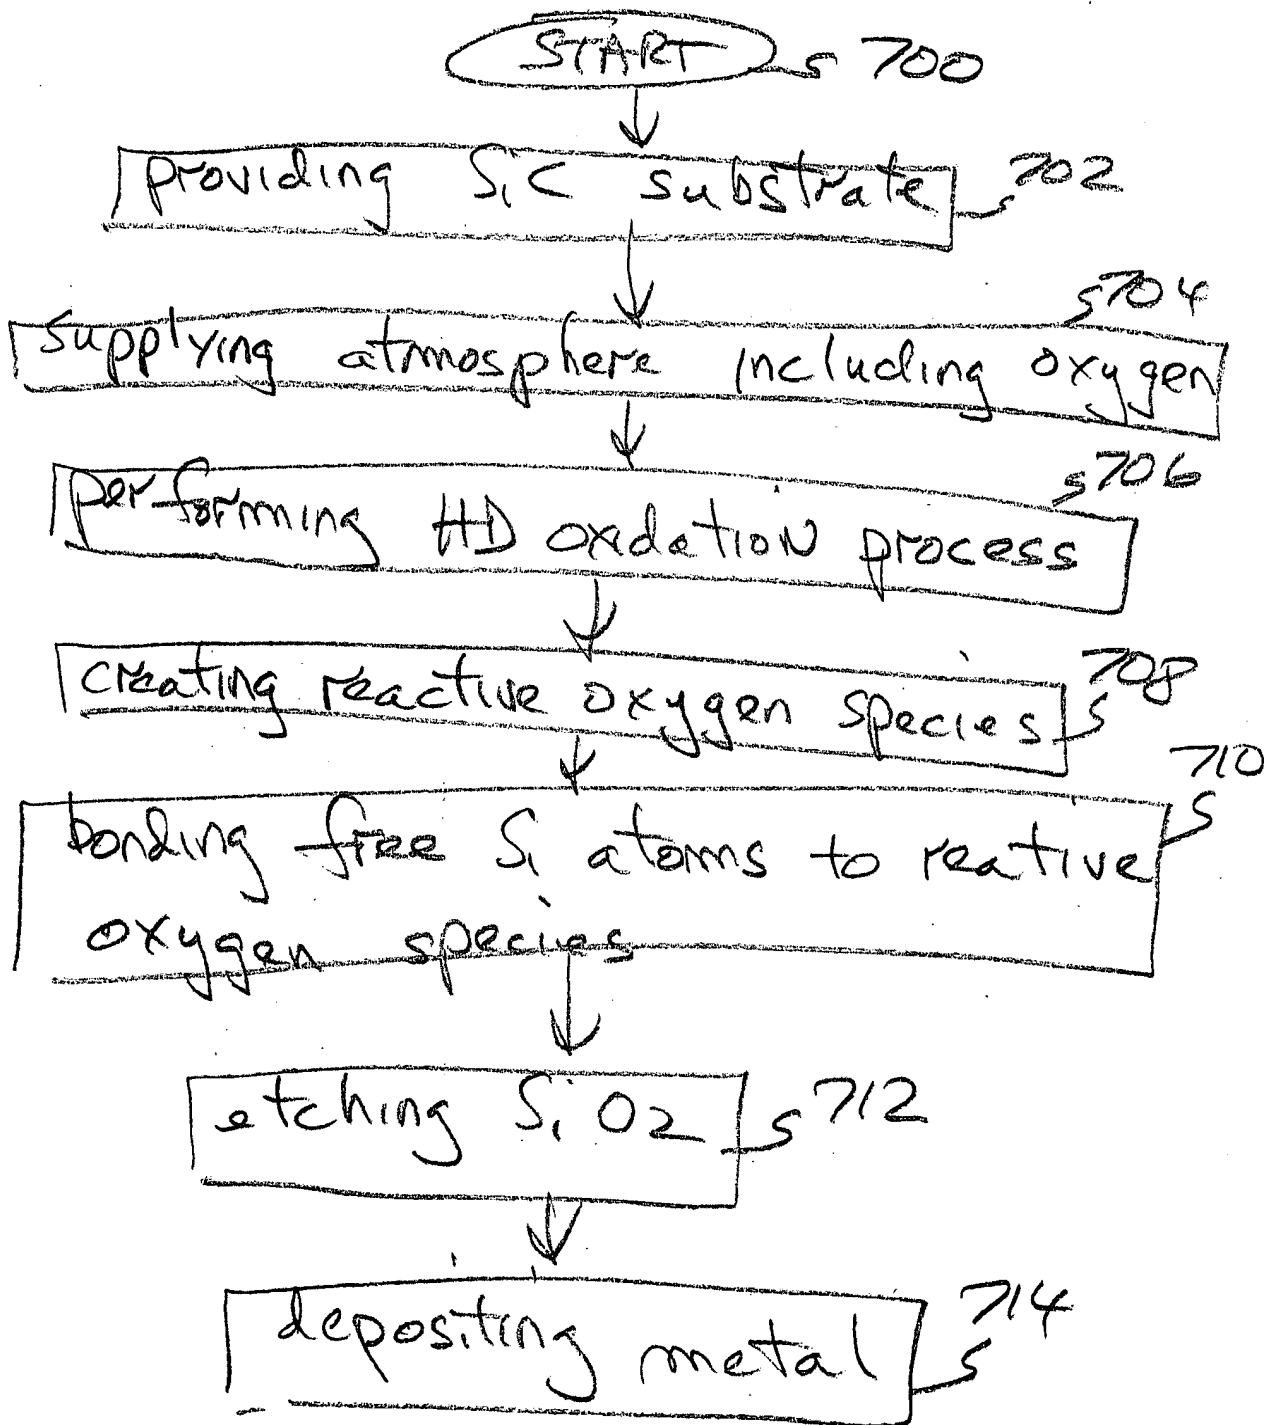 START 700
providing SiC substrate 702
704
supplying atmosphere including oxygen
706
performing HD oxidation process
creating reactive oxygen species 708
710
bonding free Si atoms to reative
oxygen species
etching SiO2 712
depositing metal 714